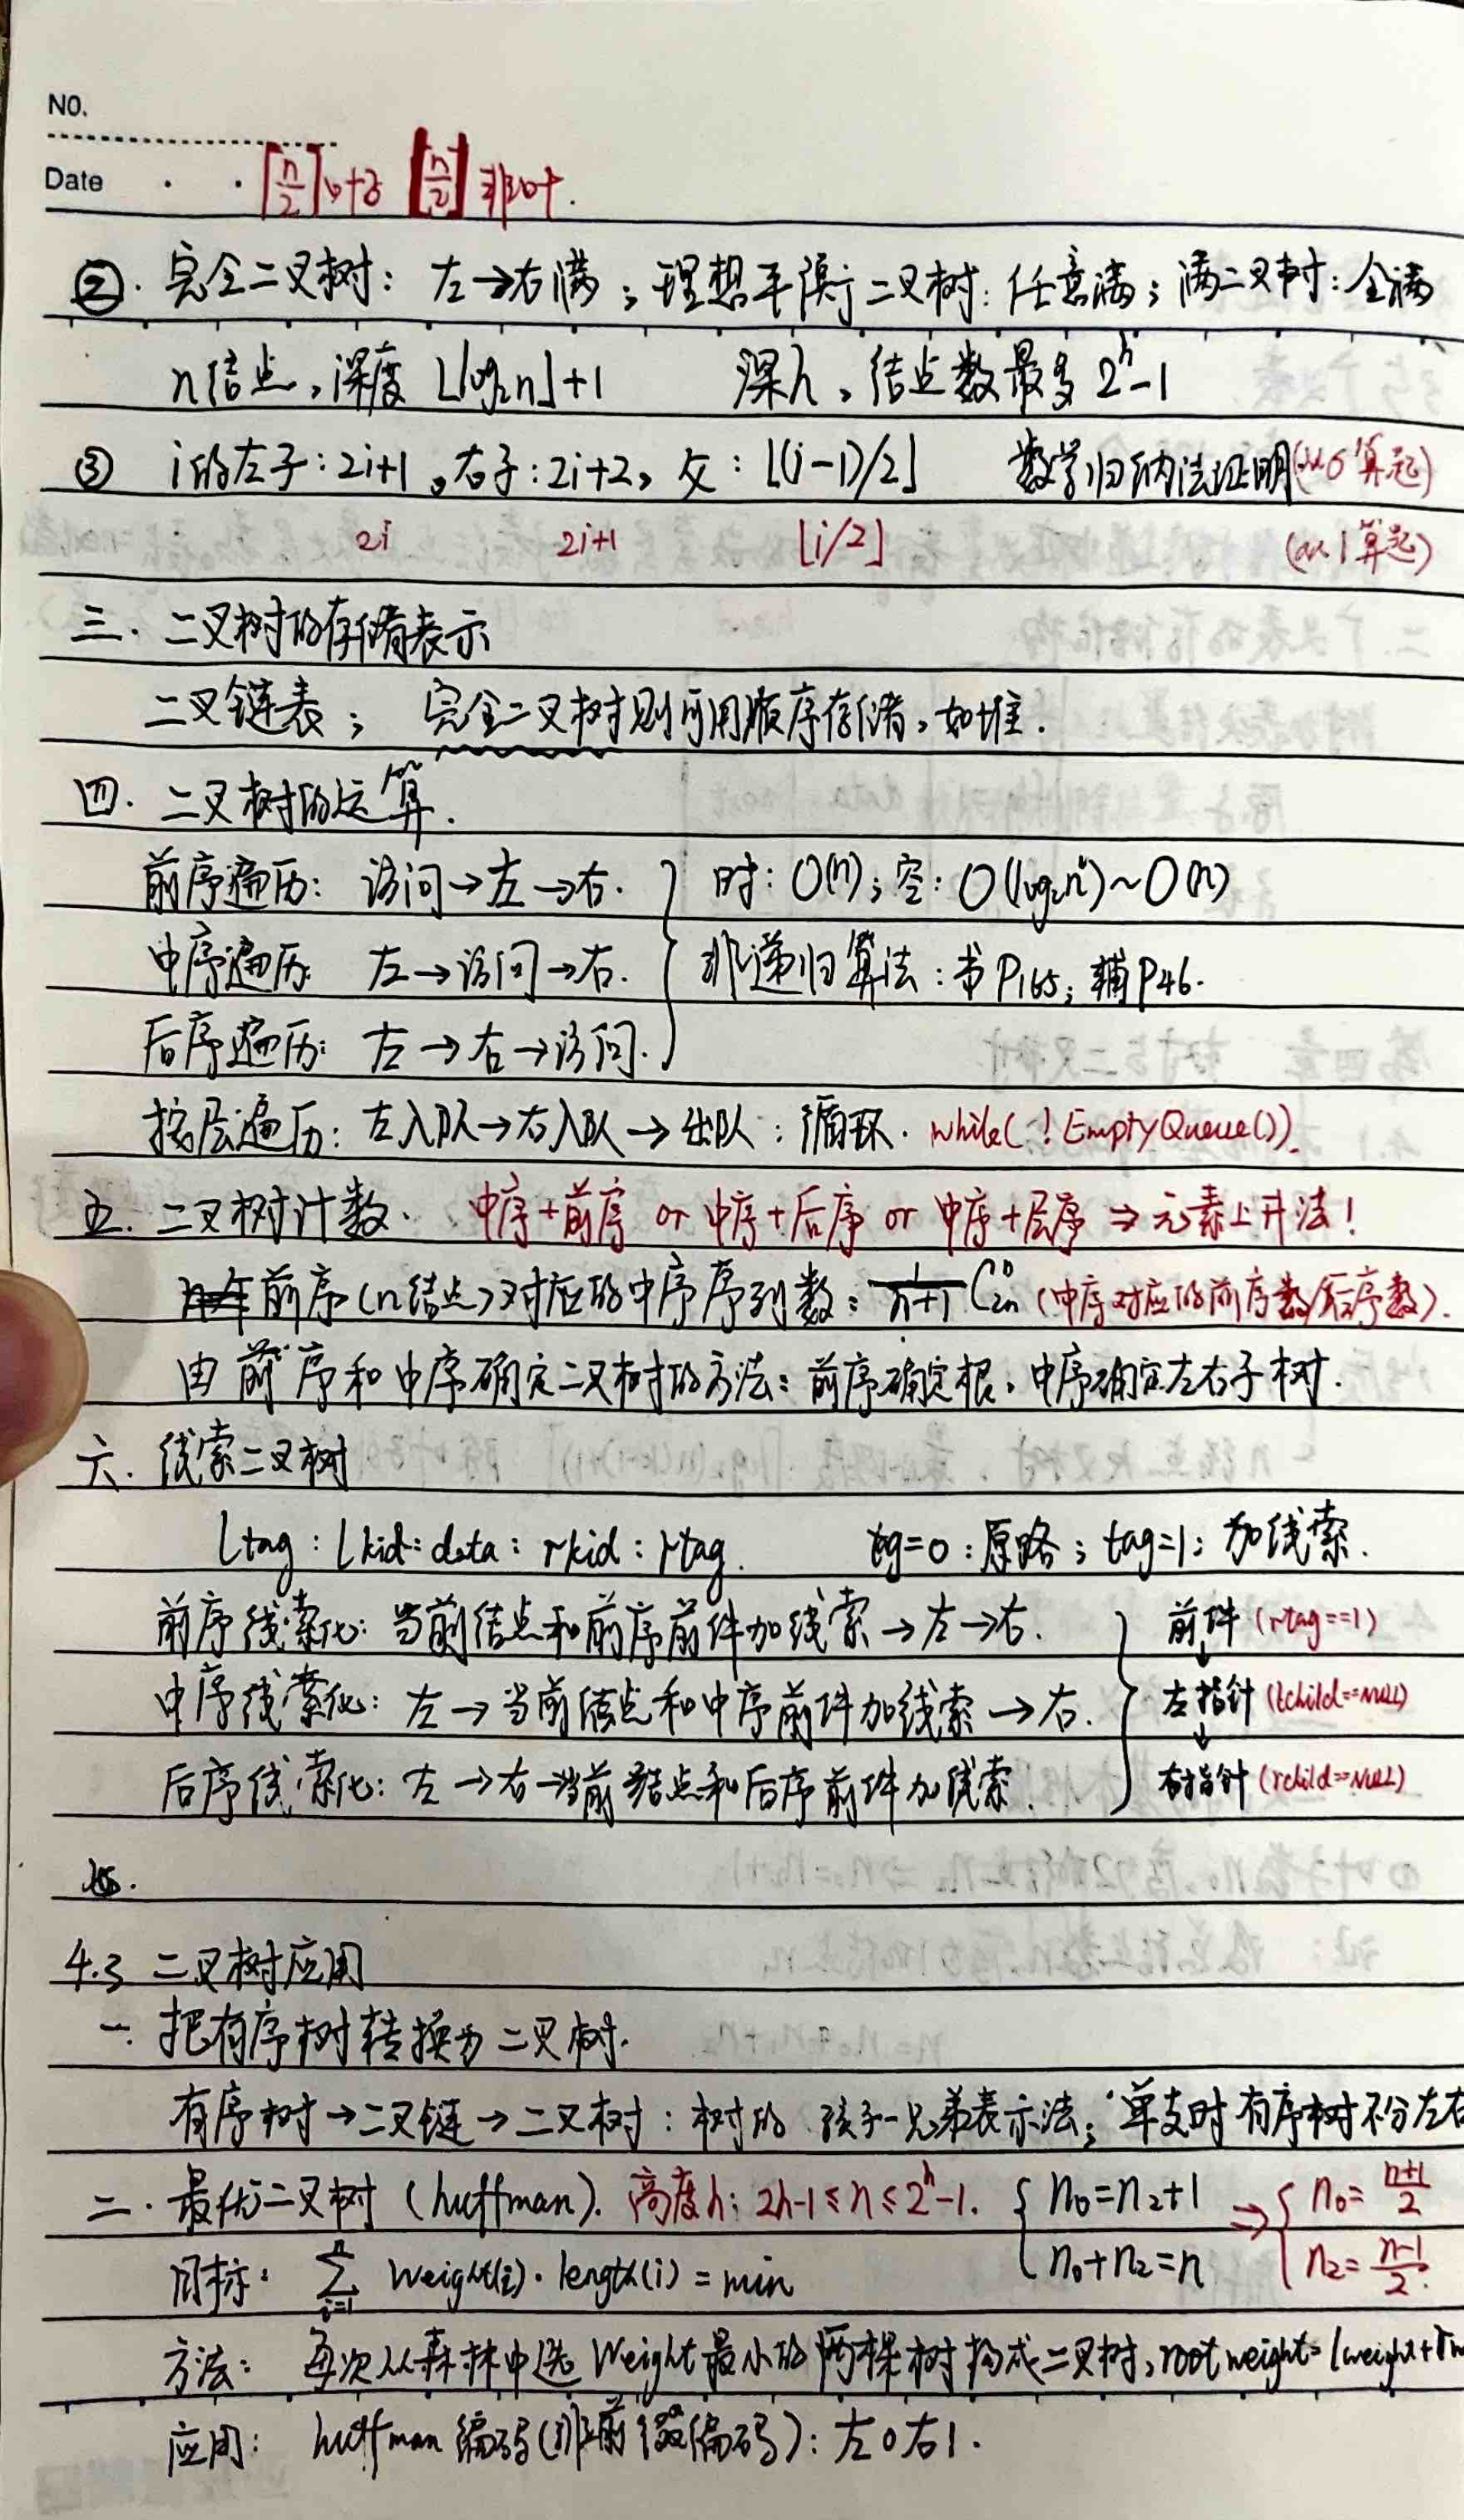 NO.
Date
⌈n/2⌉叶子 ⌊n/2⌋非叶.
②. 完全二叉树: 左→右满; 理想平衡二叉树: 任意满; 满二叉树: 全满
n结点,深度 ⌊log₂n⌋+1 深h, 结点数最多 2ʰ-1
③ i的左子: 2i+1, 右子: 2i+2, 父: ⌊(i-1)/2⌋ 数学归纳法证明(从0算起)
2i 2i+1 ⌊i/2⌋ (从1算起)
三. 二叉树的存储表示
二叉链表; 完全二叉树则可用顺序存储,如堆.
四. 二叉树的运算.
前序遍历: 访问→左→右. 时: O(n); 空: O(log₂n)~O(n)
中序遍历: 左→访问→右. 非递归算法: 书P165; 辅P46.
后序遍历: 左→右→访问.
按层遍历: 左入队→右入队→出队: 循环. while(!EmptyQueue()).
五. 二叉树计数. 中序+前序 or 中序+后序 or 中序+层序 ⇒ 元素上升法!
前序(n结点)对应的中序序列数: 1/(n+1) C₂ₙⁿ (中序对应的前序数/后序数).
由前序和中序确定二叉树的方法: 前序确定根, 中序确定左右子树.
六. 线索二叉树
ltag: lkid: data: rkid: rtag. tag=0: 原路; tag=1: 加线索.
前序线索化: 当前结点和前序前件加线索→左→右. 前件 (rtag==1)
中序线索化: 左→当前结点和中序前件加线索→右. 左指针 (lchild==NULL)
后序线索化: 左→右→当前结点和后序前件加线索. 右指针 (rchild==NULL)
4.3 二叉树应用
一. 把有序树转换为二叉树.
有序树→二叉链→二叉树: 树的孩子-兄弟表示法; 单支时有序树不分左右
二. 最优二叉树 (huffman). 高度h: 2h-1≤n≤2ʰ-1. { n₀=n₂+1 ⇒ { n₀=(n+1)/2
目标: ∑ᵢ₌₁ⁿ weight(i)·length(i)=min n₀+n₂=n n₂=(n-1)/2.
方法: 每次从森林中选weight最小的两棵树构成二叉树, root weight=lweight+
应用: huffman编码(非前缀编码): 左0右1.